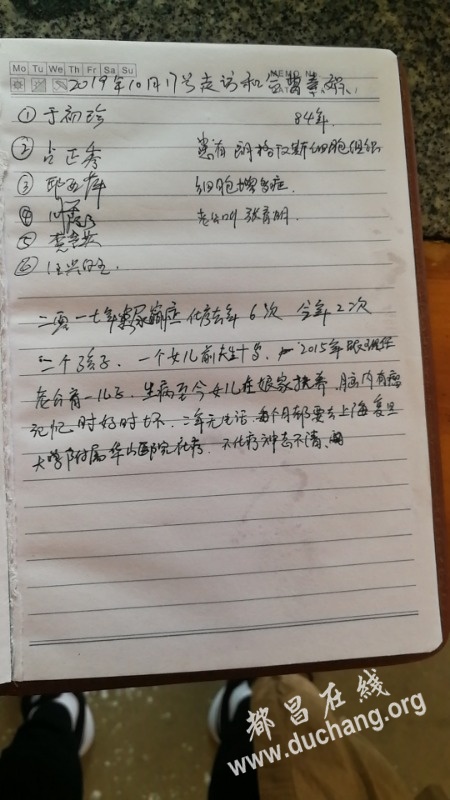 Mo Tu We Th Fr Sa Su
2019年10月17号走访和合曹素嫔
①于初珍 84年
②占正秀 患有朗格汉斯细胞组织
③ 细胞增多症
④ 老公叫张育明
⑤
⑥汪兴
二零一七年 尿崩症 化疗去年6次 今年22次
三个孩子 一个女儿前夫生十岁 2015年跟现任
老公育一儿子 生病至今女儿在娘家扶养 脑内有瘤
记忆时好时坏 二年无生活 每个月都要去上海复旦
大学附属华山医院化疗 不化疗神志不清
都昌在线
www.duchang.org